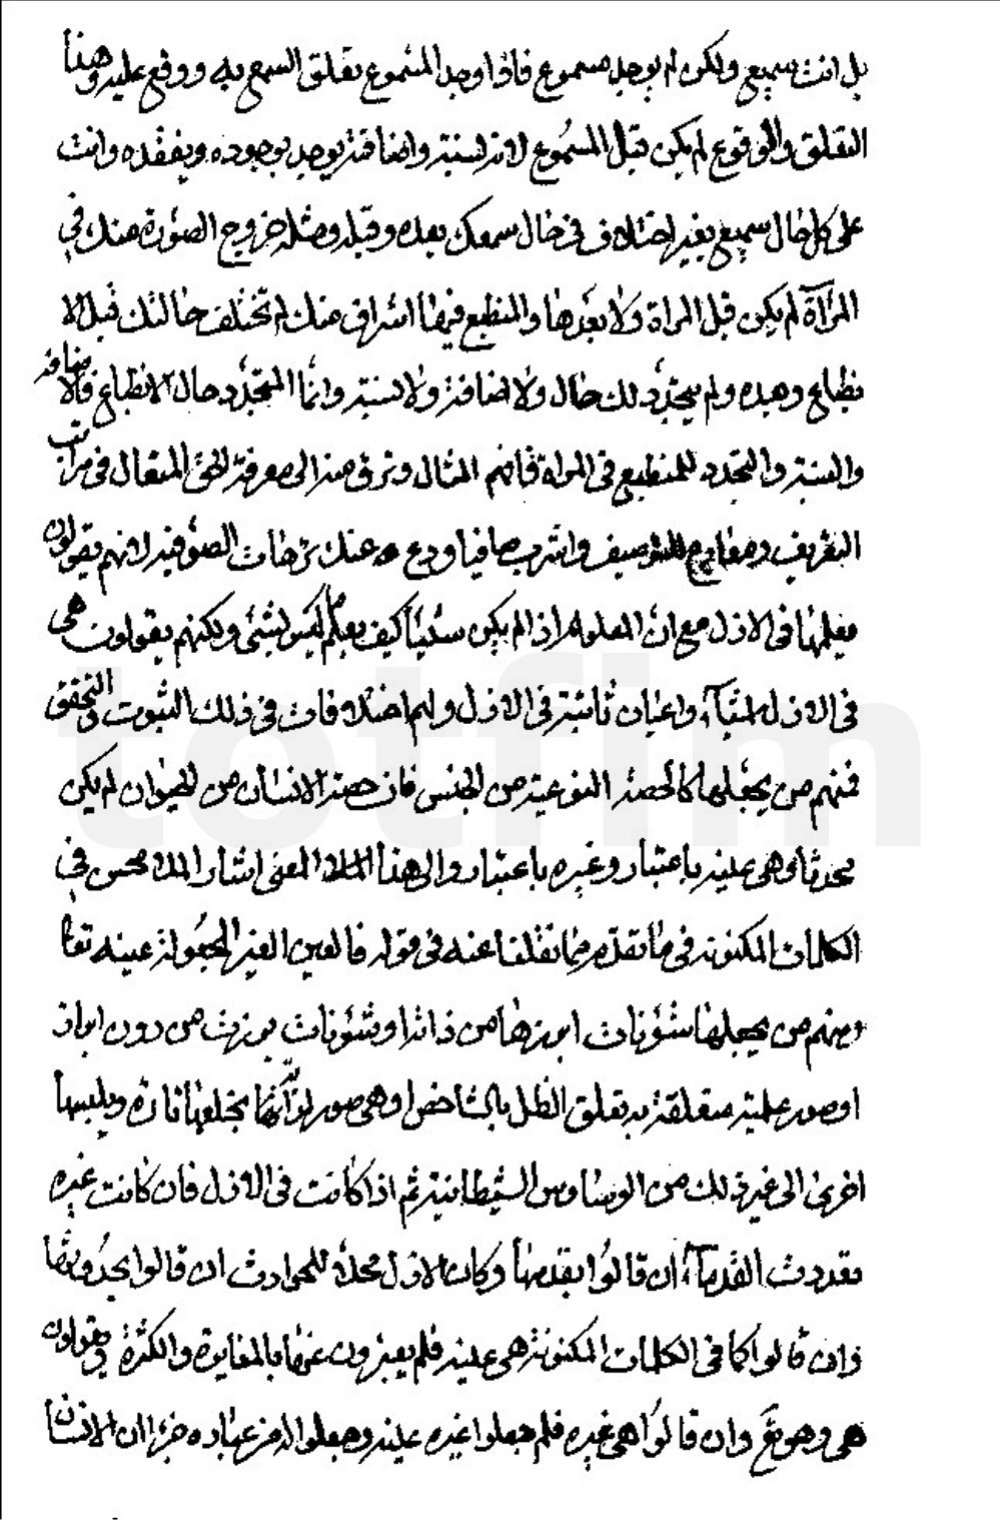 بل انت سميع ولكن لم يوجد مسموع فاذا وجد المسموع تعلق السمع به ووقع عليه وهذا
التعلق والوقوع لم يكن قبل المسموع لانه نسبة واضافة يوجد بوجوده ويفقد بفقده وانت
على كل حال سميع بغير اختلاف في حال سمعك بعده وقبله ومثله خروج الصورة منك في
المرآة لم يكن قبل المراة ولا بعدها والمنطبع فيها اشراق منك لم تختلف حالتك قبل الا
نطباع وبعده ولم يتجدد لك حال ولا اضافة ولا نسبة وانما المتجدد حال الانطباع فالاضافة
والنسبة والتجدد للمنطبع في المراة فافهم المثال وترق منه الى معرفة الحق المتعال في مراتب
التعريف ومعارج التوصيف واشرب صافيا ودع عنك ترهات الصوفية لانهم يقولون
يعلمها في الازل مع ان المعلوم اذا لم يكن شيئا كيف يعلم ليس بشئ ولكنهم يقولون هي
في الازل اشياء واعيان ثابتة في الازل ولهم اختلافات في ذلك الثبوت والتحقق
فمنهم من يجعلها كالحصة النوعية من الجنس فان حصة الانسان من الحيوان لم يكن
محدثا وهي عليه باعتبار وغيره باعتبار والى هذا المعنى اشار الملا محسن في
الكلمات المكنونة في ما تقدم مما نقلنا عنه في قوله فالعين الغير المجعولة عينه تعالى
ومنهم من يجعلها شئونات ابرزها من ذاته او شئونات برزت من دون ابراز
او صور علمية متعلقة به تعلق الظل بالشاخص او هي صور لوازمها يخلعها تارة ويلبسها
اخرى الى غير ذلك من الوساوس الشيطانية ثم اذا كانت في الازل فان كانت غيره
تعددت القدماء ان قالوا بقدمها وكان الازل محلا للحوادث ان قالوا بحدوثها
وان قالوا كما في الكلمات المكنونة هي عينه فلم يعبرون عنها بالمغايرة والكثرة ويقولون
هي وهو مع وان قالوا هي غيره فلم جعلوا غيره عينه وجعلوا له من عباده جزءا ان الانسان